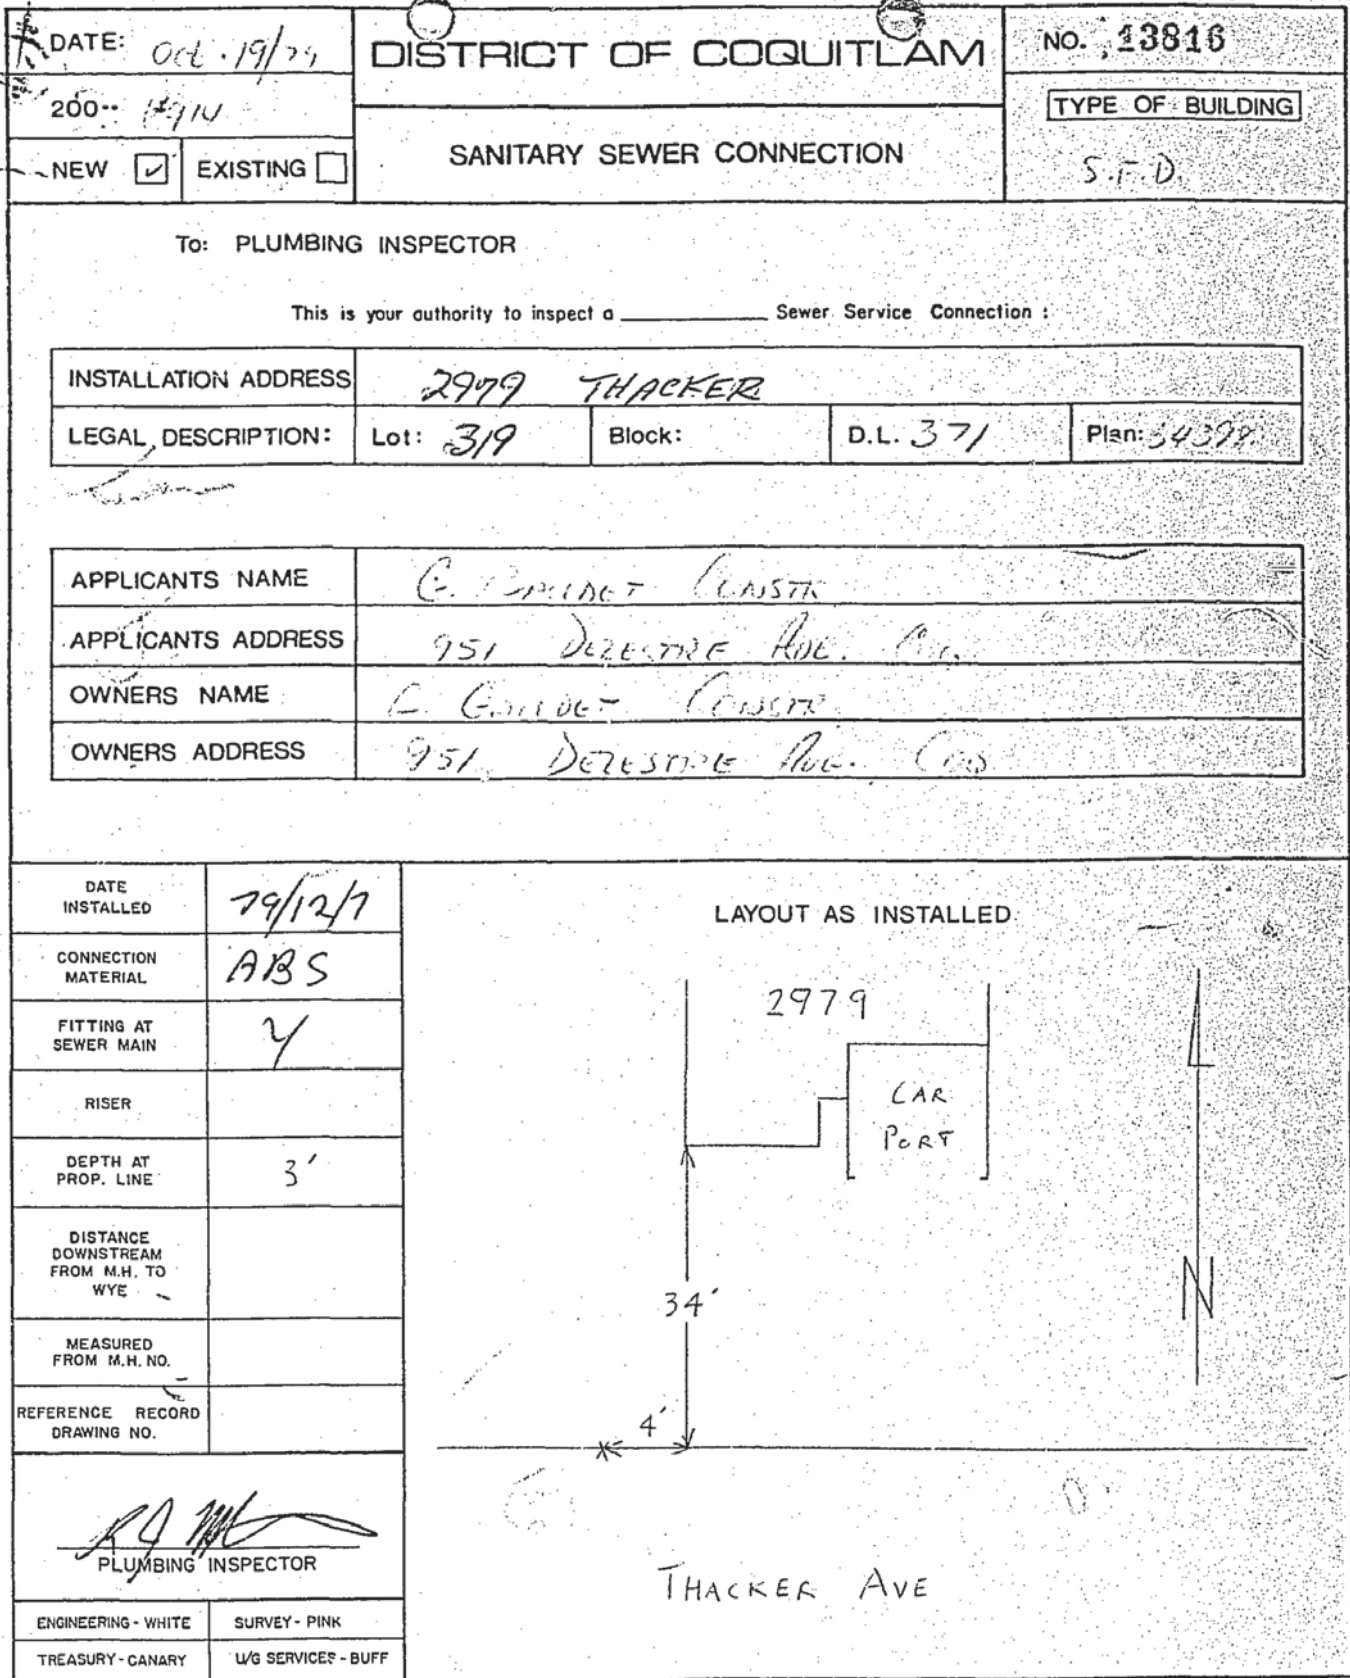 DATE: Oct. 19/79
DISTRICT OF COQUITLAM
NO. 13816
200--
TYPE OF BUILDING
NEW ☑ EXISTING ☐
SANITARY SEWER CONNECTION
S.F.D.
To: PLUMBING INSPECTOR
This is your authority to inspect a __________ Sewer Service Connection :
INSTALLATION ADDRESS 2979 THACKER
LEGAL DESCRIPTION: Lot: 319 Block: D.L. 371 Plan:
APPLICANTS NAME CONSTR
APPLICANTS ADDRESS 951 AVE.
OWNERS NAME CONSTR
OWNERS ADDRESS 951 AVE.
DATE INSTALLED 79/12/7
CONNECTION MATERIAL ABS
FITTING AT SEWER MAIN Y
RISER
DEPTH AT PROP. LINE 3'
DISTANCE DOWNSTREAM FROM M.H. TO WYE
MEASURED FROM M.H. NO.
REFERENCE RECORD DRAWING NO.
PLUMBING INSPECTOR
ENGINEERING - WHITE SURVEY - PINK
TREASURY - CANARY U/G SERVICES - BUFF
LAYOUT AS INSTALLED
2979
CAR
PORT
34'
N
4'
THACKER AVE